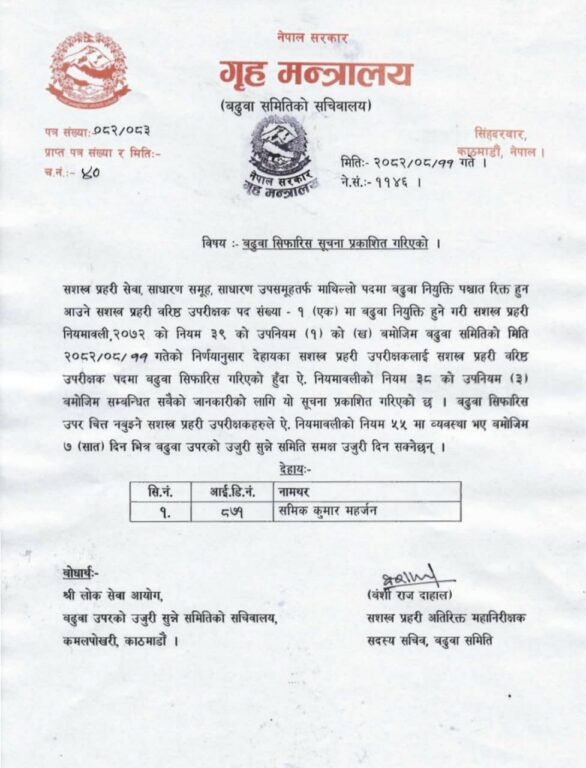 नेपाल सरकार
गृह मन्त्रालय
(बढुवा समितिको सचिवालय)
पत्र संख्या:०८२/०८३
प्राप्त पत्र संख्या र मितिः-
च.नं.:- ४०
नेपाल सरकार
गृह मन्त्रालय
सिंहदरबार,
काठमाडौं, नेपाल ।
मितिः- २०८२/०८/११ गते ।
ने.सं.:- ११४६ ।
विषय :- बढुवा सिफारिस सूचना प्रकाशित गरिएको ।
सशस्त्र प्रहरी सेवा, साधारण समूह, साधारण उपसमूहतर्फ माथिल्लो पदमा बढुवा नियुक्ति पश्चात रिक्त हुन
आउने सशस्त्र प्रहरी वरिष्ठ उपरीक्षक पद संख्या - १ (एक) मा बढुवा नियुक्ति हुने गरी सशस्त्र प्रहरी
नियमावली,२०७२ को नियम ३९ को उपनियम (१) को (ख) बमोजिम बढुवा समितिको मिति
२०८२/०८/११ गतेको निर्णयानुसार देहायका सशस्त्र प्रहरी उपरीक्षकलाई सशस्त्र प्रहरी वरिष्ठ
उपरीक्षक पदमा बढुवा सिफारिस गरिएको हुँदा ऐ. नियमावलीको नियम ३८ को उपनियम (३)
बमोजिम सम्बन्धित सबैको जानकारीको लागि यो सूचना प्रकाशित गरिएको छ । बढुवा सिफारिस
उपर चित्त नबुझ्ने सशस्त्र प्रहरी उपरीक्षकहरुले ऐ. नियमावलीको नियम ५५ मा व्यवस्था भए बमोजिम
७ (सात) दिन भित्र बढुवा उपरको उजुरी सुन्ने समिति समक्ष उजुरी दिन सक्नेछन् ।
देहायः-
सि.नं. आई.डि.नं. नामथर
१. ८७१ समिक कुमार महर्जन
बोधार्थः-
श्री लोक सेवा आयोग,
बढुवा उपरको उजुरी सुन्ने समितिको सचिवालय,
कमलपोखरी, काठमाडौं ।
(वंशी राज दाहाल)
सशस्त्र प्रहरी अतिरिक्त महानिरीक्षक
सदस्य सचिव, बढुवा समिति